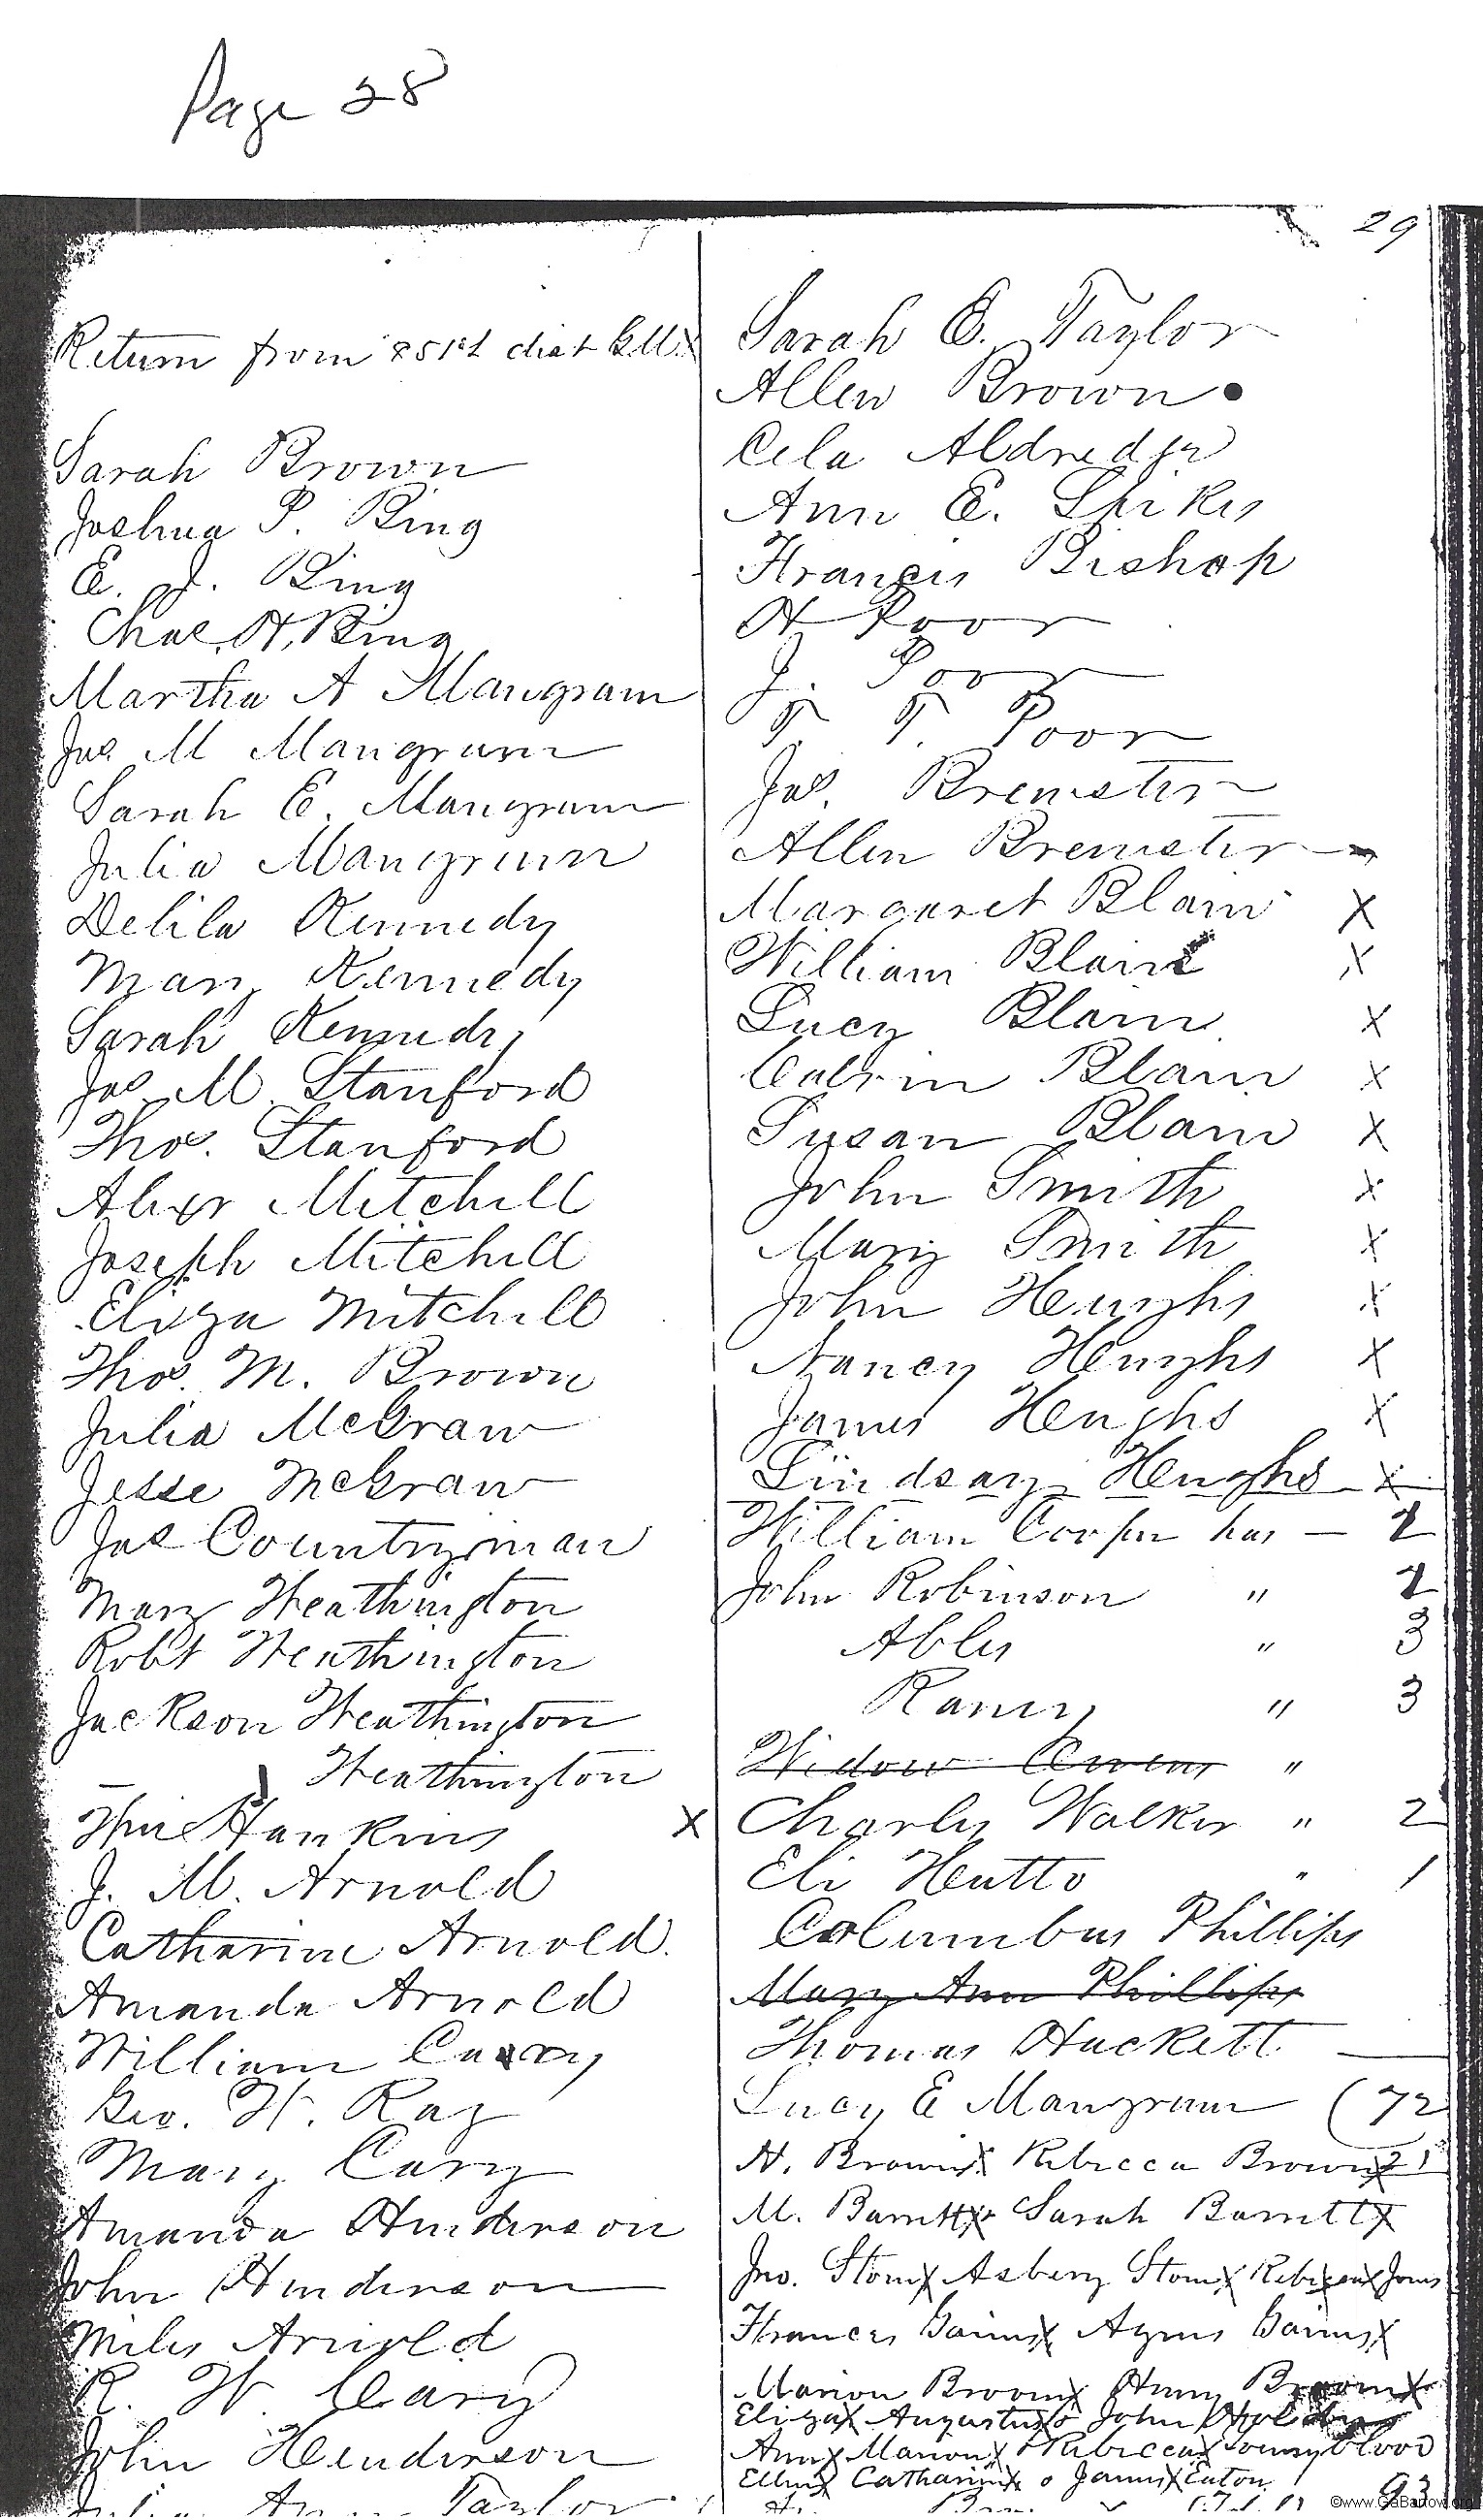 Page 28
29
Return from 851st dist G.M.
Sarah Brown
Joshua P. Bing
E. J. Bing
Chas. H. Bing
Martha A Mangram
Jas M Mangrum
Sarah E. Mangrum
Julia Mangrum
Delila Kennedy
Mary Kennedy
Sarah Kennedy
Jas M. Stanford
Thos. Stanford
Alexr Mitchell
Joseph Mitchell
Eliza Mitchell
Thos. M. Brown
Julia McGraw
Jesse McGraw
Jas Countryman
Mary Heathington
Robt Heathington
Jackson Heathington
Heathington
Hankins X
J. M. Arnold
Catharine Arnold.
Amanda Arnold
William
Geo. W. Ray
Mary Cary
Amanda Henderson
John Henderson
Miles Arnold
R. W. Cary
John Henderson
Taylor
Sarah E. Taylor
Allen Brown
Cela Aldredge
Ann E. Spikes
Francis Bishop
H Poor
J. Poor
T. T. Poor
Jas. Brewster
Allen Brewster
Margaret Blain X
William Blain X
Lucy Blain X
Calvin Blain X
Susan Blain X
John Smith X
Mary Smith X
John Heughs X
Nancy Heughs X
James Heughs X
Lindsay Heughs X
William Cooper has — 2
John Robinson " 2
Ables " 3
Raney " 3
Widow Owens "
Charles Walker " 2
Eli Hutto " 1
Columbus Phillips
Mary Ann Phillips
Thomas Hackett
Lucy E Mangrum (72
N. Brown X Rebecca Brown X 21
M. Barrett X Sarah Barrett X
Jno. Stone X Asbery Stone X Rebecca X Jones
Frances Gaines X Agnes Gaines X
Marion Broom X Henry Broom X
Eliza X Augustus X John
Ann X Marion X Rebecca X Youngblood
Ellen X Catharine X James X Eaton
93
©www.GaBartow.org